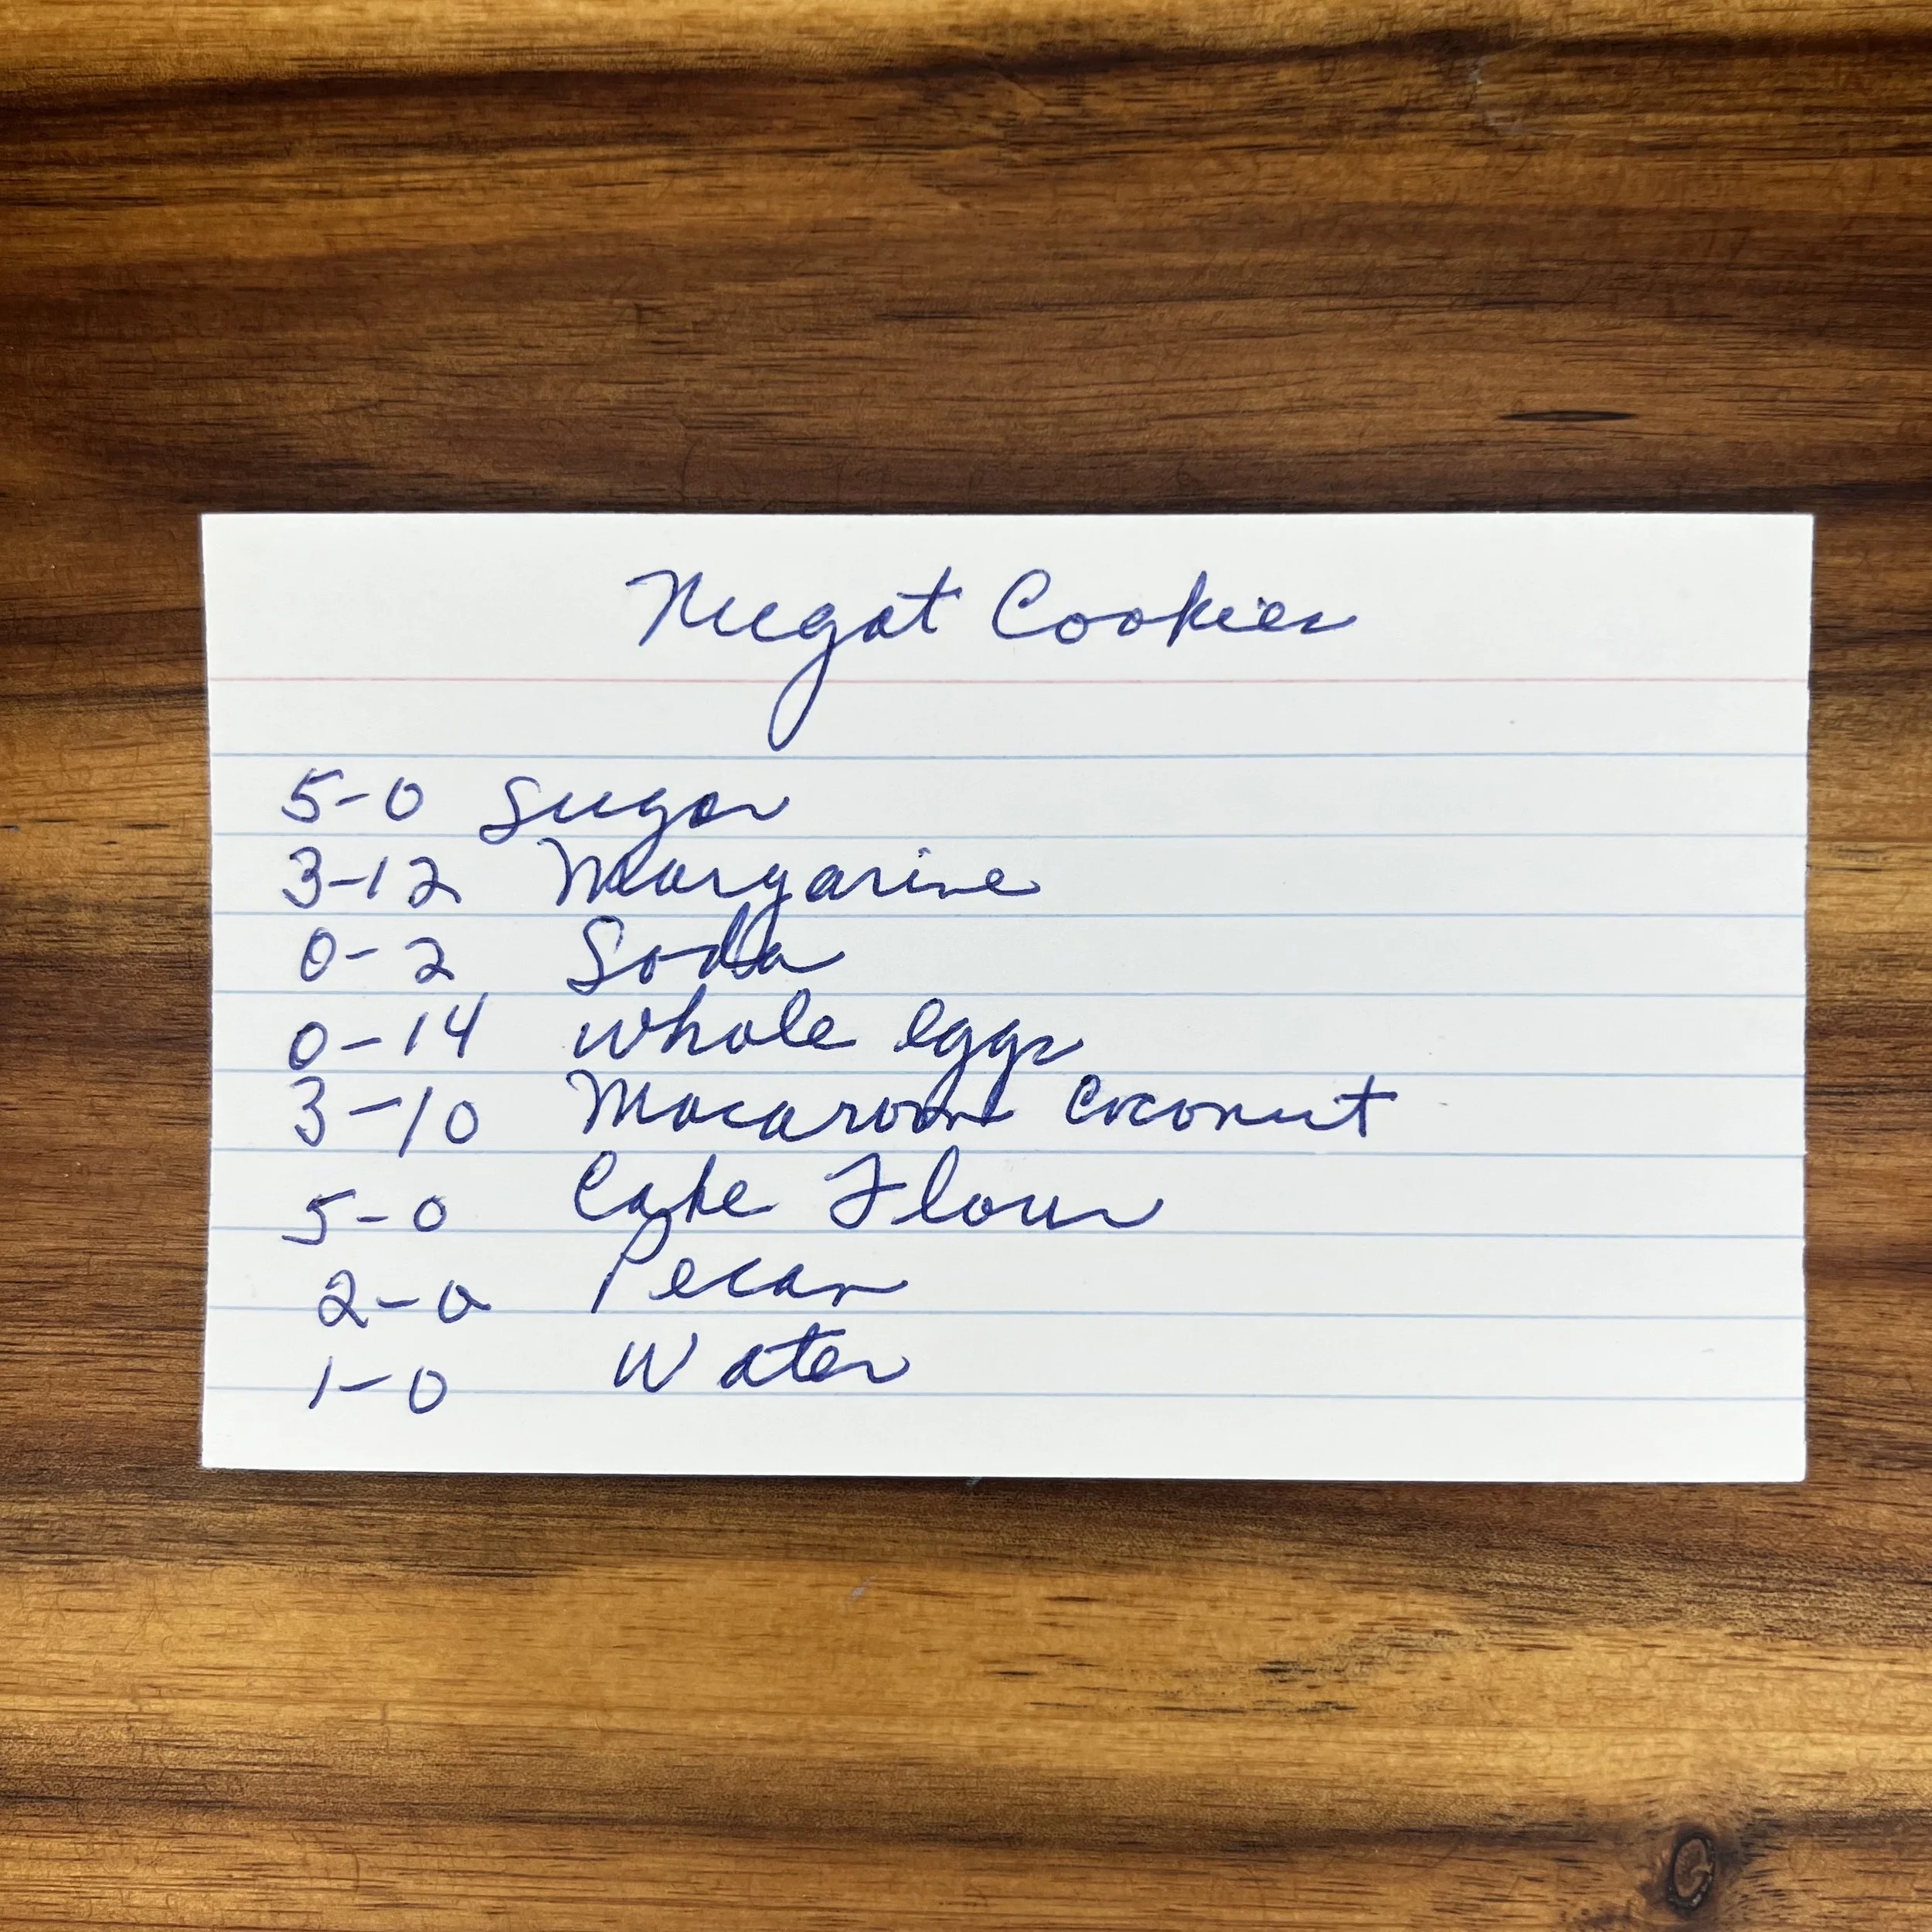 Nugat Cookies
5-0 Sugar
3-12 Margarine
0-2 Soda
0-14 whole eggs
3-10 Macaroon Coconut
5-0 Cake Flour
2-0 Pecan
1-0 Water